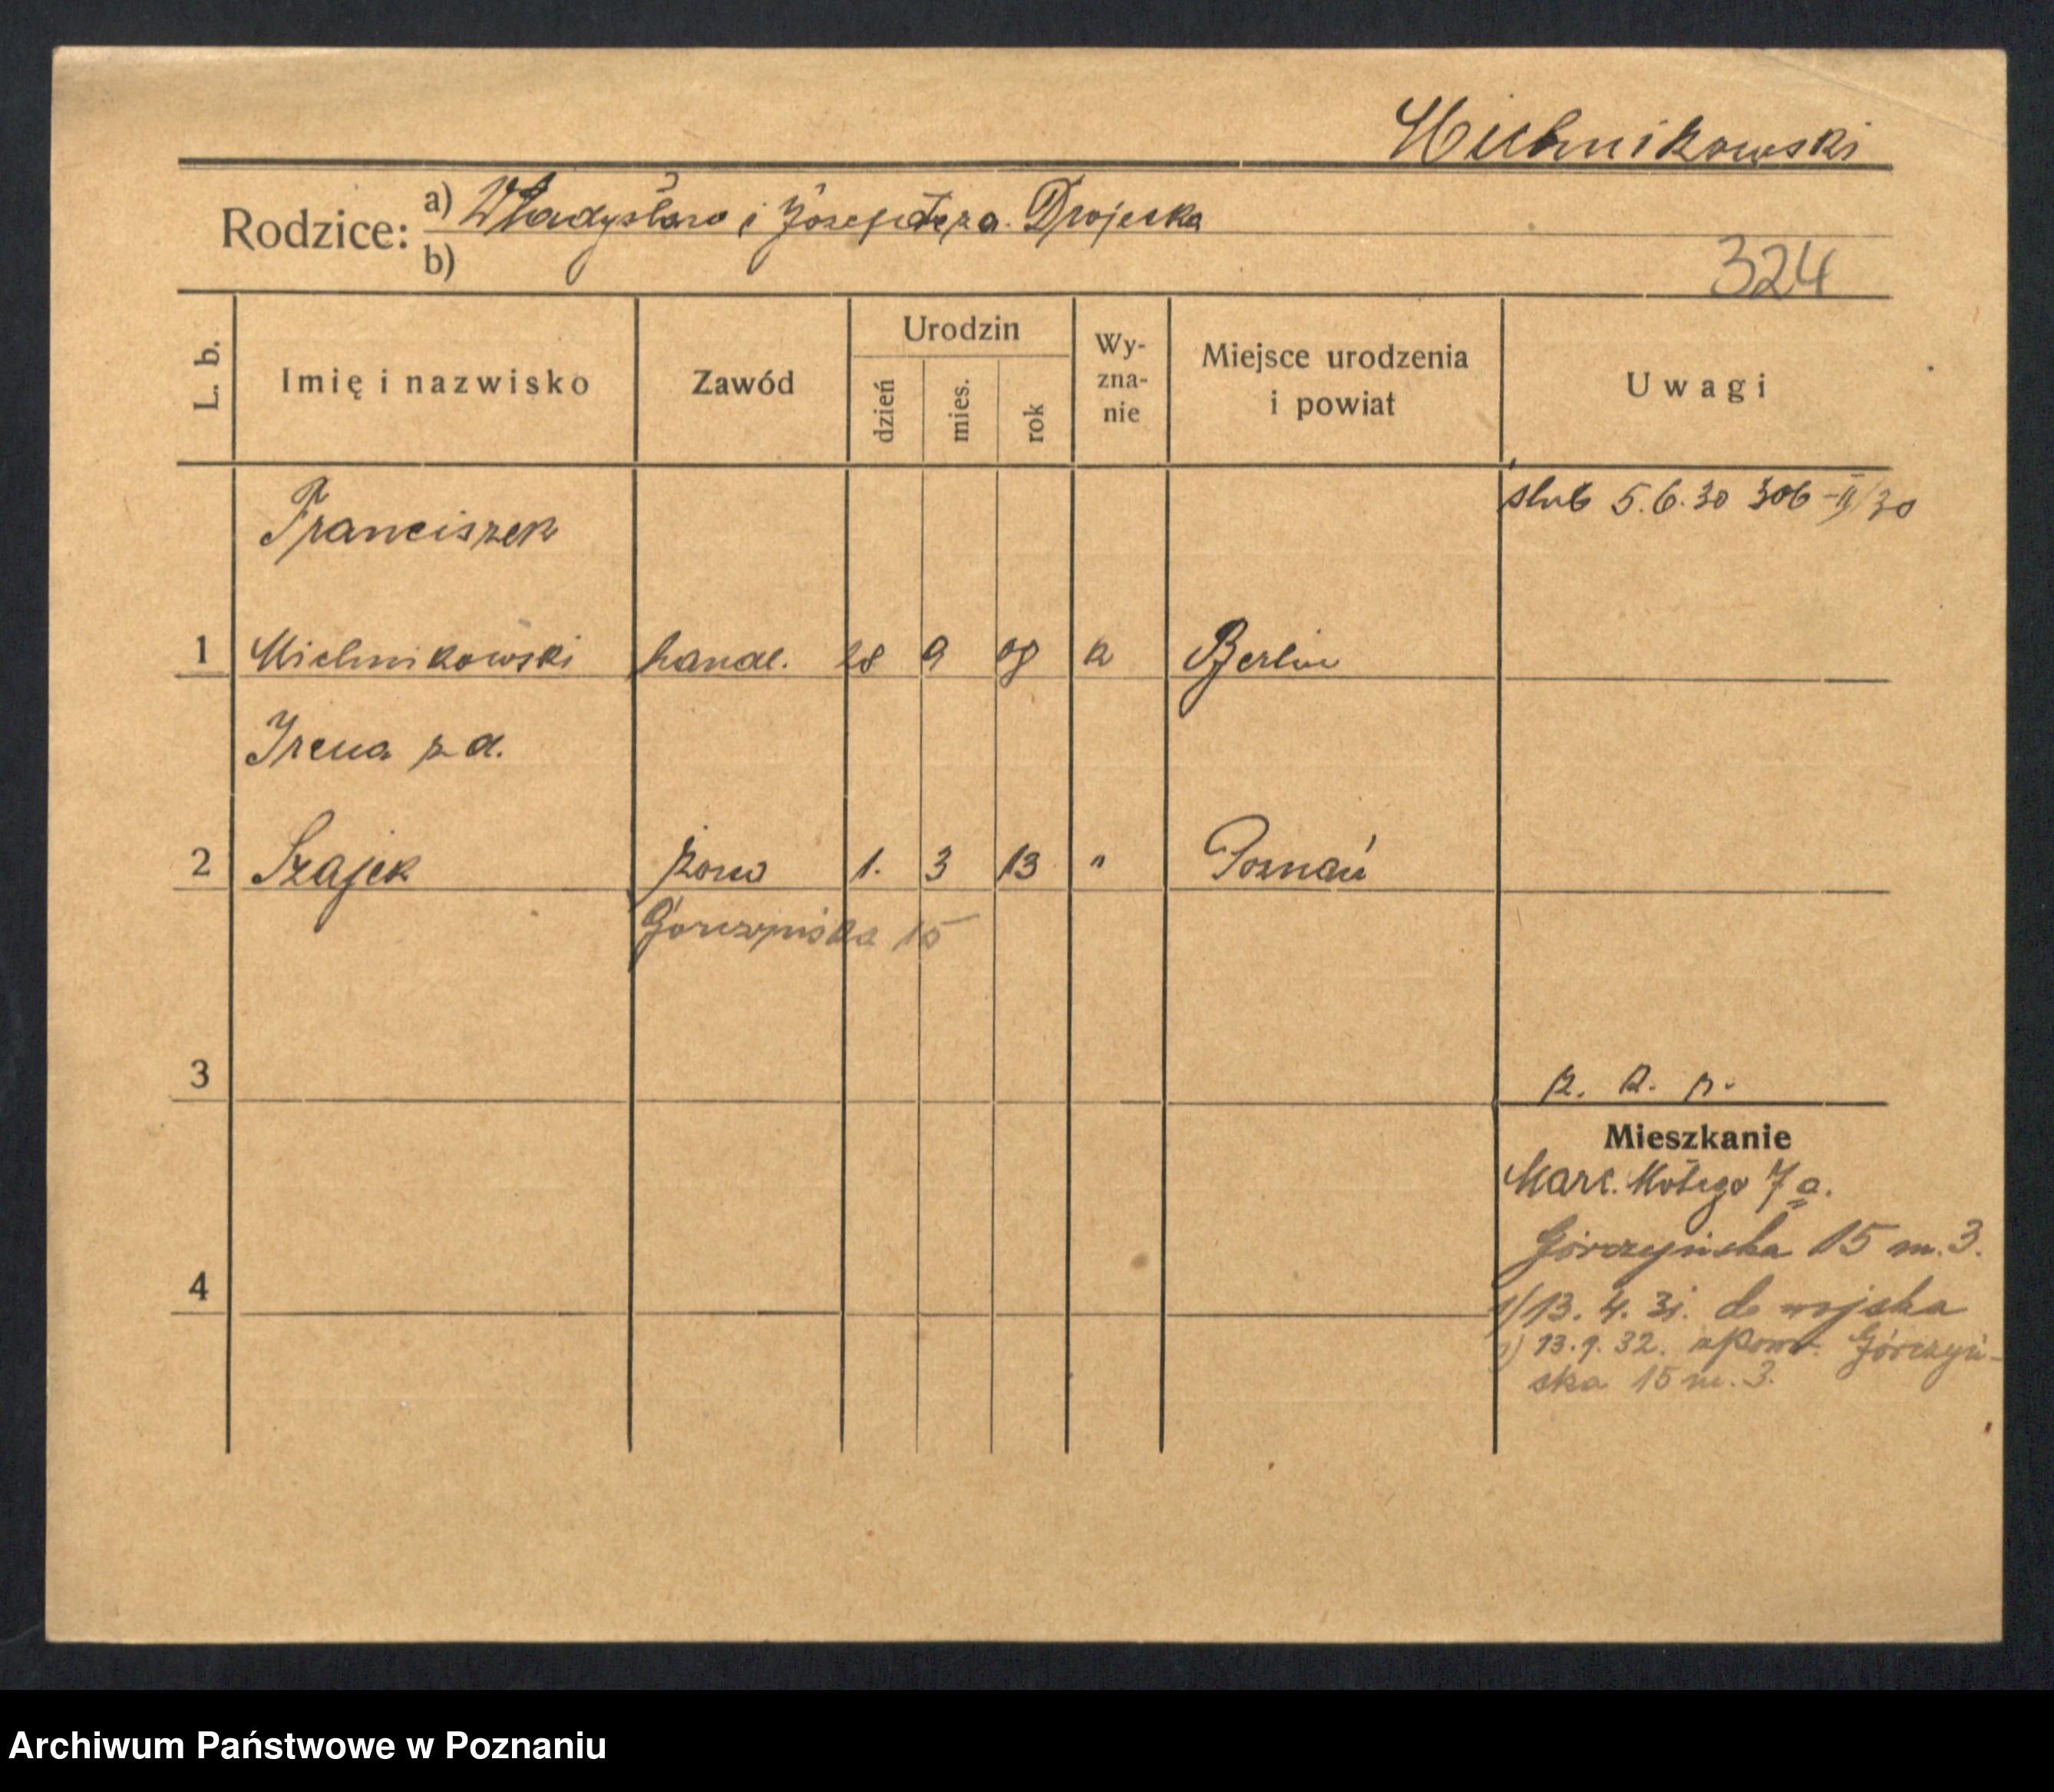 Michnikowski
Rodzice: a) Władysław i Józefa z d. Drojecka
b)
324
L. b.
Imię i nazwisko
Zawód
Urodzin
dzień
mies.
rok
Wy-
zna-
nie
Miejsce urodzenia
i powiat
Uwagi
ślub 5.6.30 306-II/30
Franciszek
1 Michnikowski handl. 28 9 08 k Berlin
Irena z d.
2 Szajek żona 1. 3 13 " Poznań
Górczyńska 15
3
Mieszkanie
Marc. Mottego 7a.
Górczyńska 15 m. 3.
4
1) 13. 4. 31. do wojska
1) 13.9.32. z powr. Górczyń-
ska 15 m. 3.
Archiwum Państwowe w Poznaniu